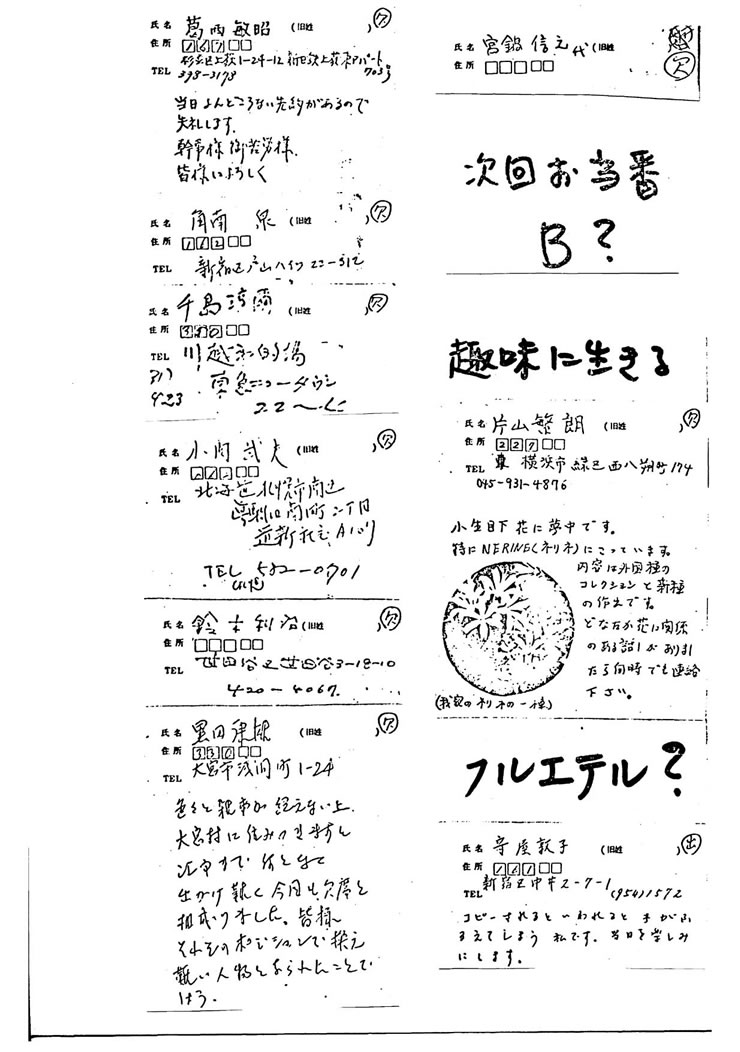 氏名 葛西敏昭 (旧姓 ) 欠
住所 167
杉並区上荻1-24-12 新日鉄上荻東アパート
TEL 398-3178 703号
当日よんどころない先約があるので
失礼します。
幹事様御苦労様。
皆様によろしく
氏名 角南 泉 (旧姓 ) 欠
住所 162
TEL 新宿区戸山ハイツ 22-312
氏名 千島 (旧姓 ) 欠
住所 350
TEL 川越市的場
ニュータウン
22
氏名 小関武夫 (旧姓 ) 欠
住所
TEL 北海道札幌市南区
南町二丁目
道新社宅
TEL 582-0701
氏名 鈴木利治 (旧姓 ) 欠
住所
TEL 世田谷区世田谷3-18-10
420-4067
氏名 黒田康雄 (旧姓 ) 欠
住所 330
TEL 大宮市浅間町1-24
色々と雑事が絶えない上、
大宮村に住みつきますと
都内まで何となく
出かけ難く今回も欠席と
相成りました。皆様
それぞれのポジションで換え
難い人物となられたことで
せう。
氏名 宮脇信元 代 (旧姓 欠
住所
次回お当番
B?
趣味に生きる
氏名 片山繁朗 (旧姓 ) 欠
住所 227
TEL 横浜市緑区西八朔町174
045-931-4876
小生目下花に夢中です。
特にNERINE(ネリネ)にこっています。
内容は外国種の
コレクションと新種
の作出です。
どなたか花に関係
のある話しがありまし
たら何時でも連絡
下さい。
(我家のネリネの一種)
フルエテル?
氏名 守屋敦子 (旧姓 ) 出
住所 161
TEL 新宿区中井2-7-1
(954)1572
コピーされるといわれると手がふ
るえてしまう私です。当日を楽しみ
にします。